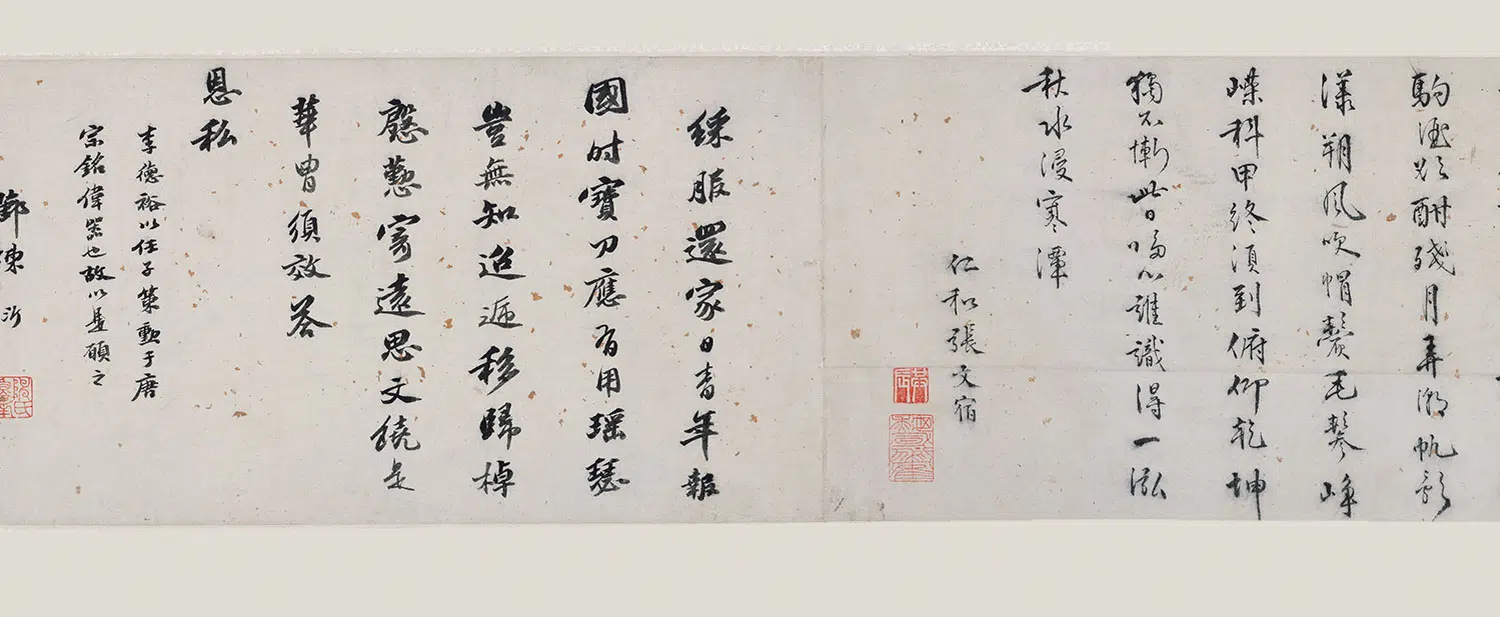 駒酒散酣殘月弄潮帆影
漾朔風吹帽鬢毛鬖崢
嶸科甲終須到俯仰乾坤
獨不慚此日賜心誰識得一泓
秋水浸寒潭
仁和張文宿
綵服還家日青年報
國時寶刀應有用瑶瑟
豈無知迢遞移歸棹
慇懃寄遠思文繞足
華胄須效答
恩私
李德裕以任子策勳于唐
宗銘偉器也故以是頎之
鄞陳沂